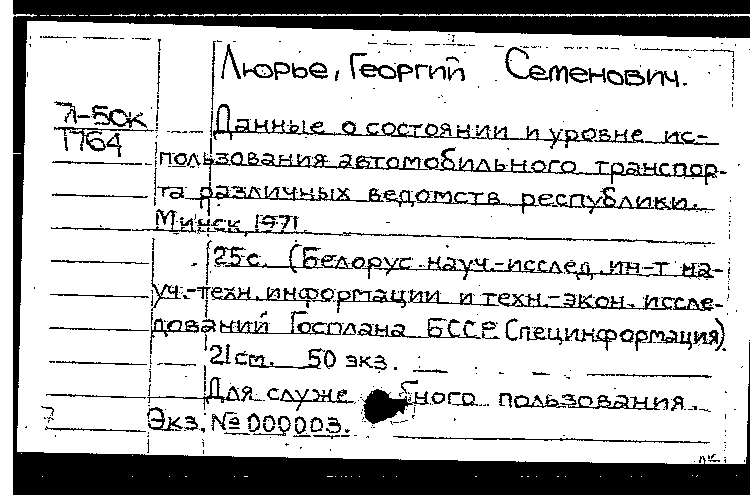 Люрье, Георгий Семенович.
Л-50к
1764
Данные о состоянии и уровне ис-
пользования автомобильного транспор-
та различных ведомств республики.
Минск, 1971.
25с. (Белорус. науч.-исслед. ин-т на-
уч.-техн. информации и техн.-экон. иссле-
дований Госплана БССР. Специнформация).
21см. 50 экз.
Для служебного пользования.
7 Экз. № 000003.